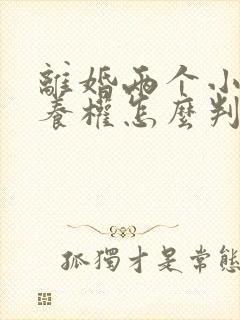 離婚兩个小
養權怎麼判
孤獨才是常態